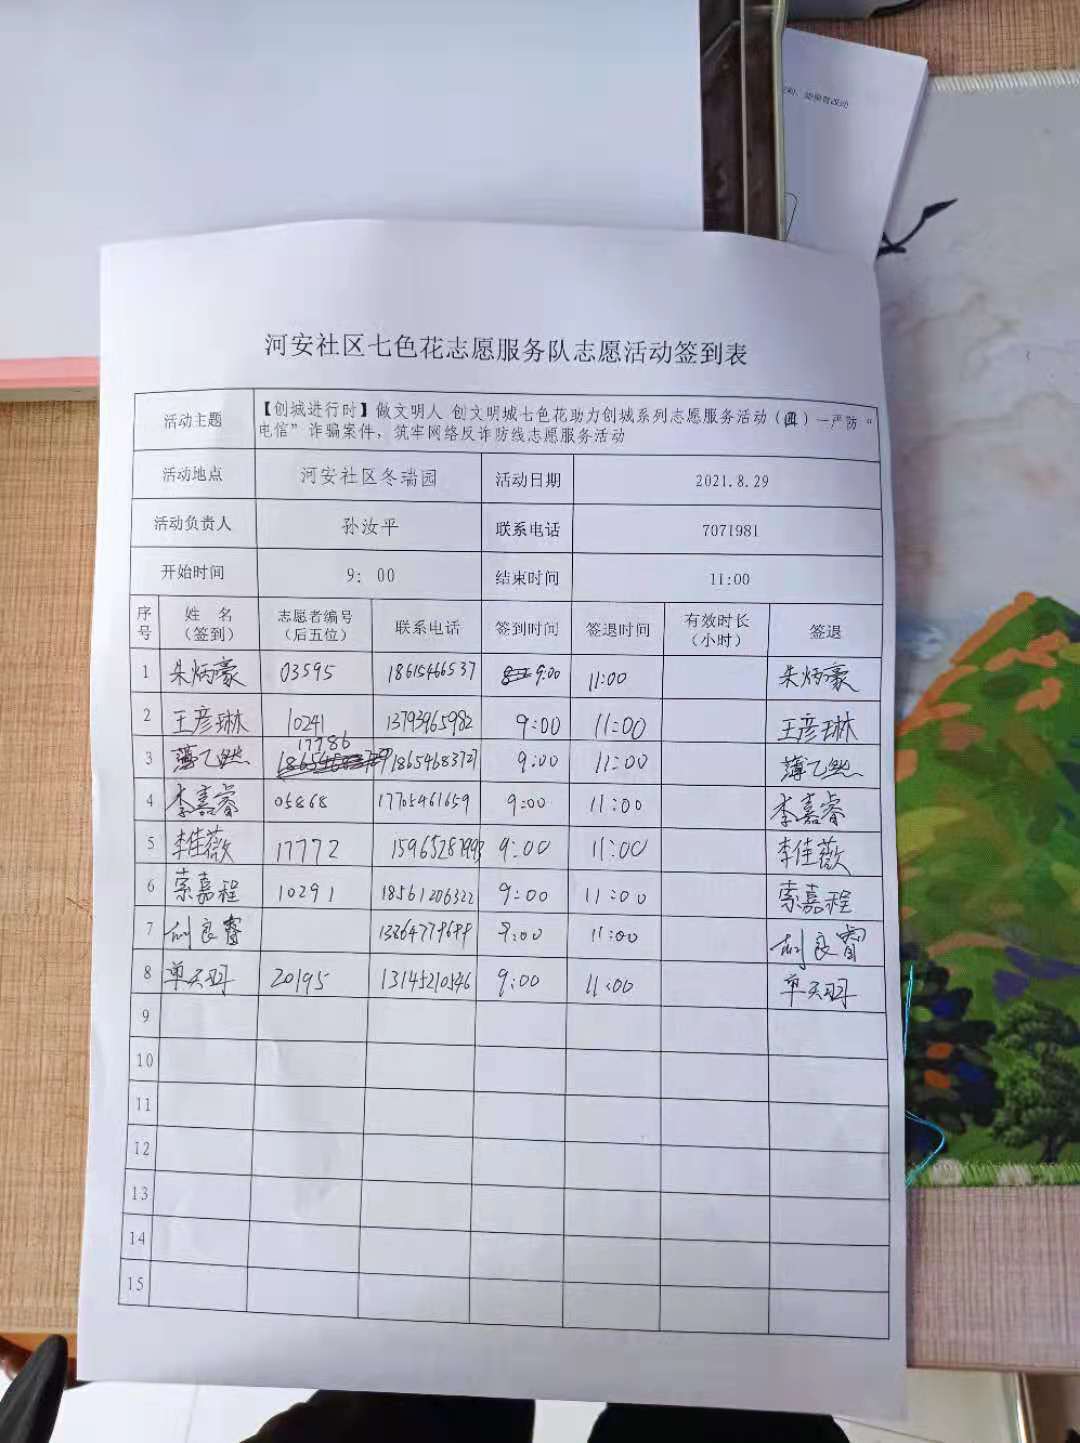 河安社区七色花志愿服务队志愿活动签到表
活动主题 【创城进行时】做文明人 创文明城七色花助力创城系列志愿服务活动（四）—严防“
电信”诈骗案件，筑牢网络反诈防线志愿服务活动
活动地点 河安社区冬瑞园 活动日期 2021.8.29
活动负责人 孙汝平 联系电话 7071981
开始时间 9：00 结束时间 11:00
序号 姓 名（签到） 志愿者编号（后五位） 联系电话 签到时间 签退时间 有效时长（小时） 签退
1 朱炳豪 03595 18615466537 9:00 11:00 朱炳豪
2 王彦琳 10241 13793965982 9:00 11:00 王彦琳
3 薄乙然 17786 18654683727 9:00 11:00 薄乙然
4 李嘉睿 05868 17705461659 9:00 11:00 李嘉睿
5 李佳薇 17772 9:00 11:00 李佳薇
6 索嘉程 10291 18561206322 9:00 11:00 索嘉程
7 良睿 9:00 11:00 良睿
8 单 20195 13145210546 9:00 11:00 单
9
10
11
12
13
14
15